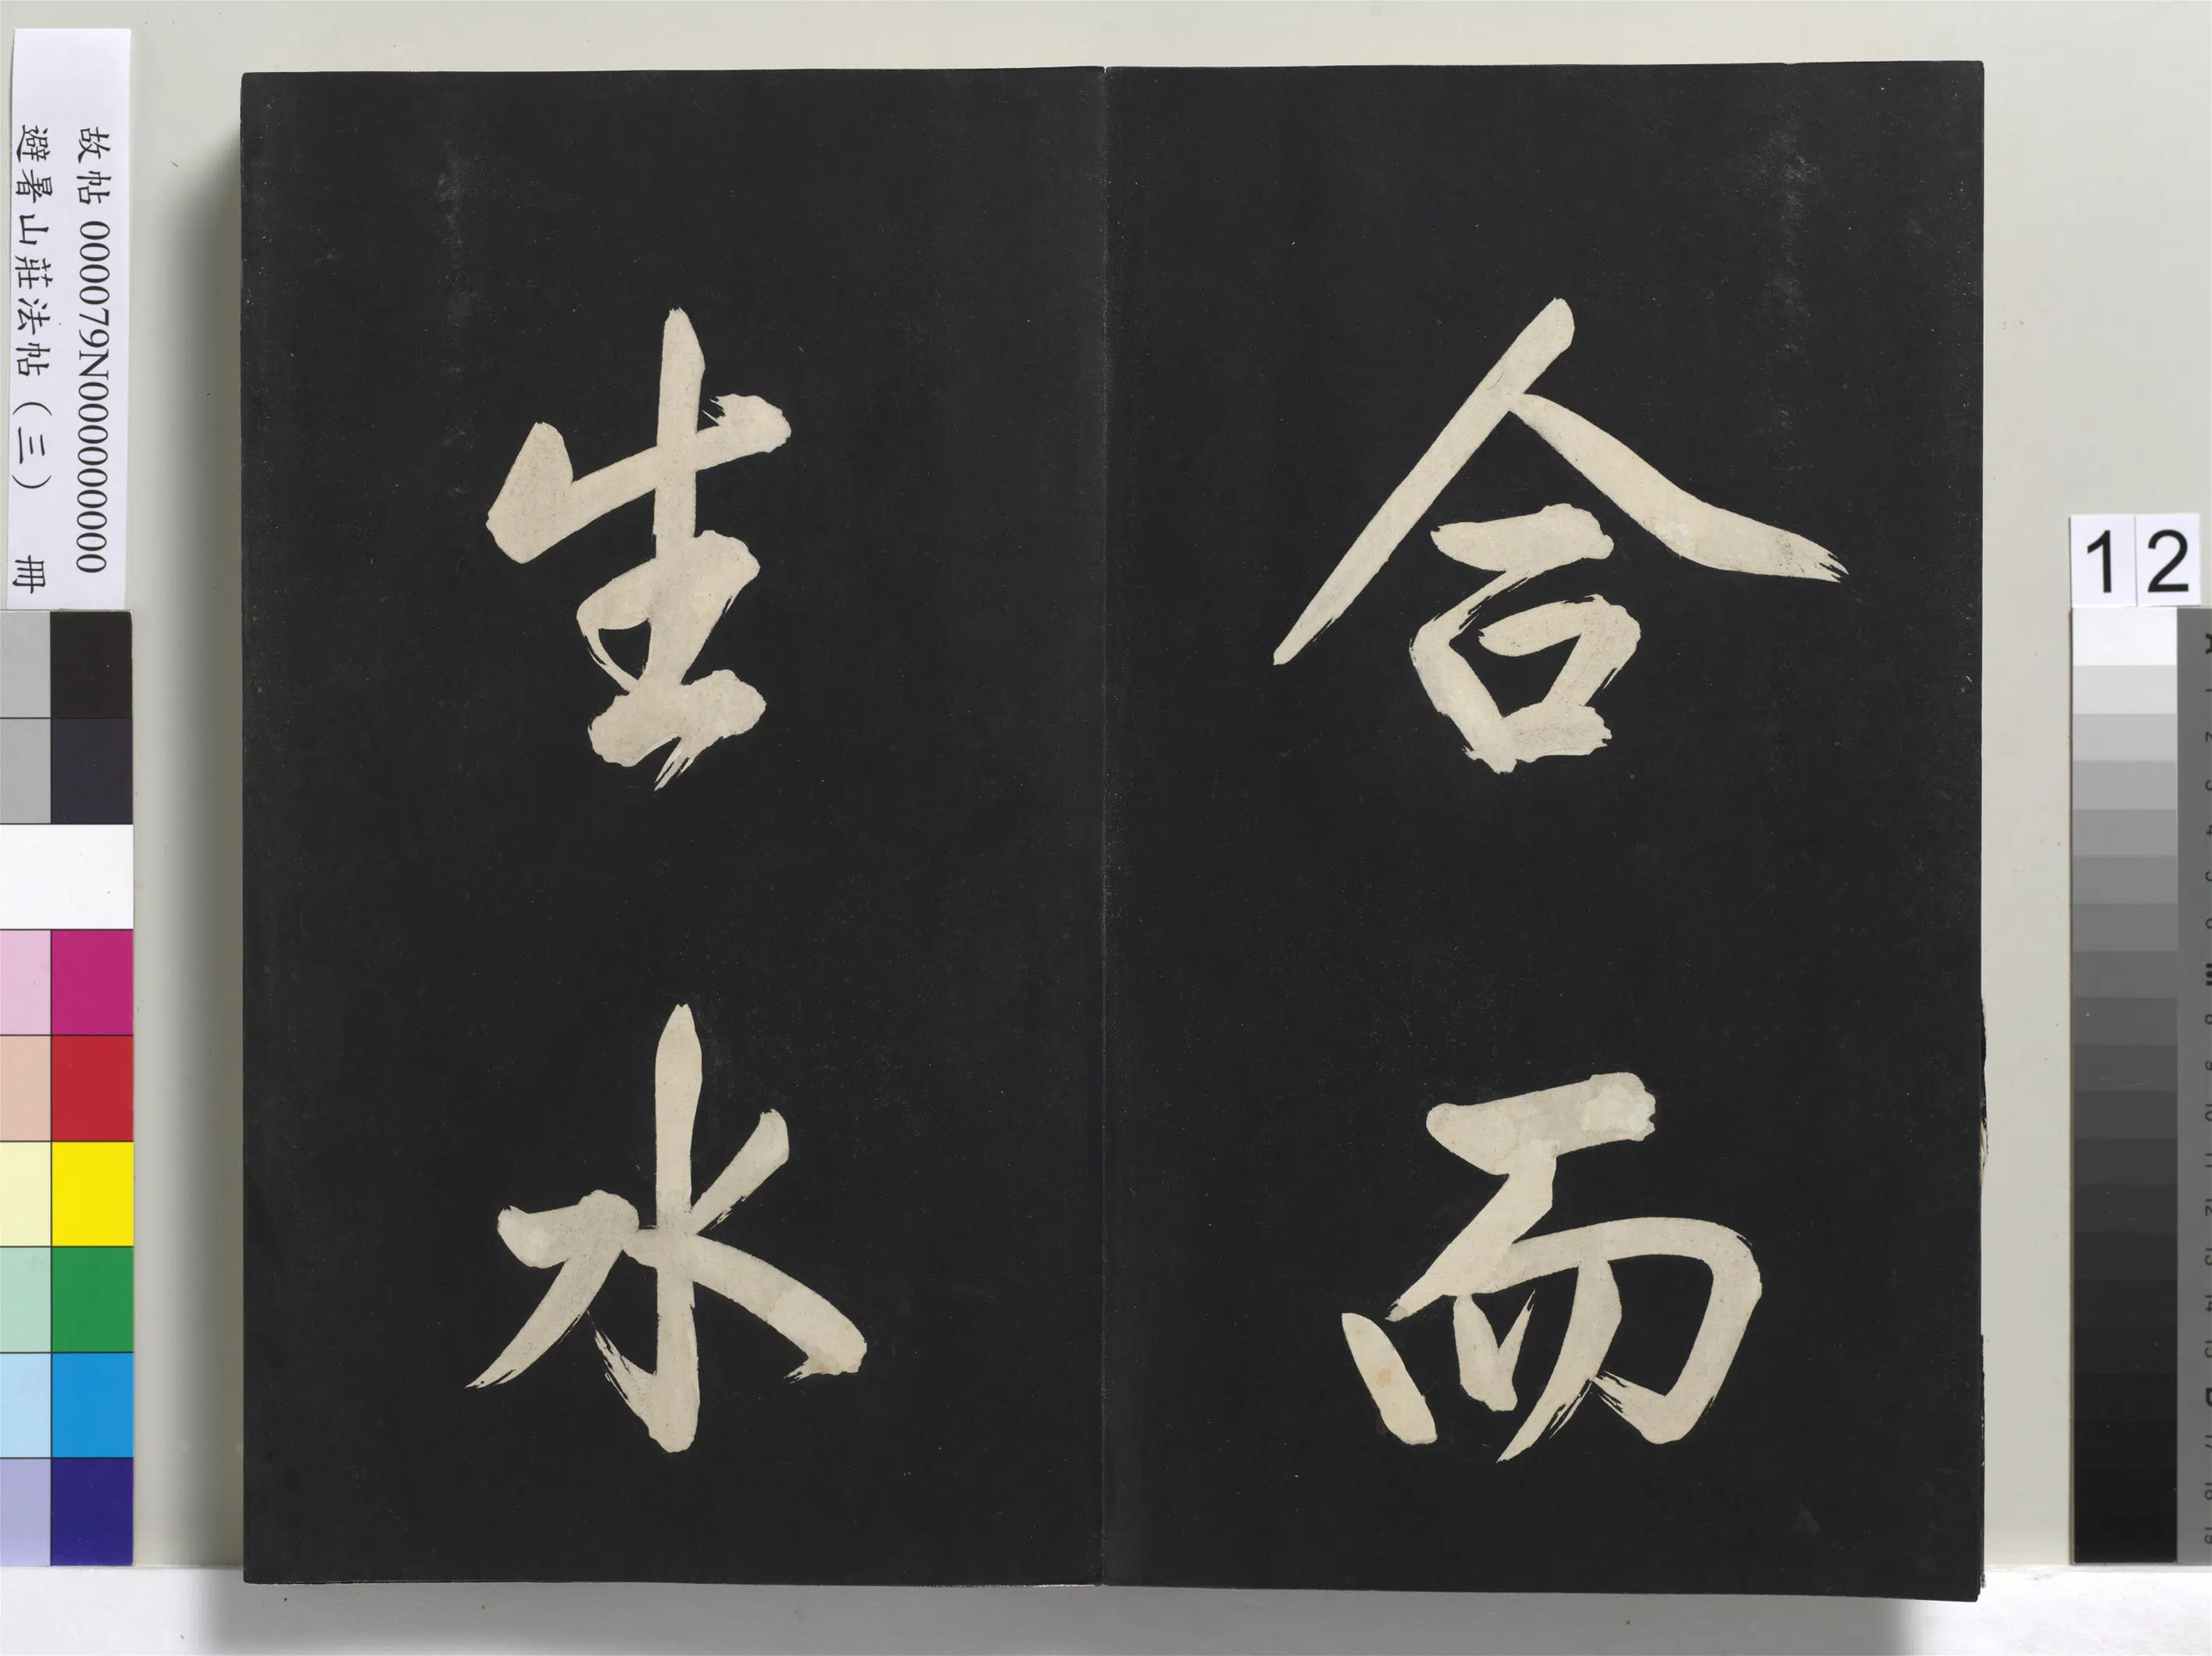 合而
生水
故帖 000079N000000000
避暑山莊法帖(三) 冊
12